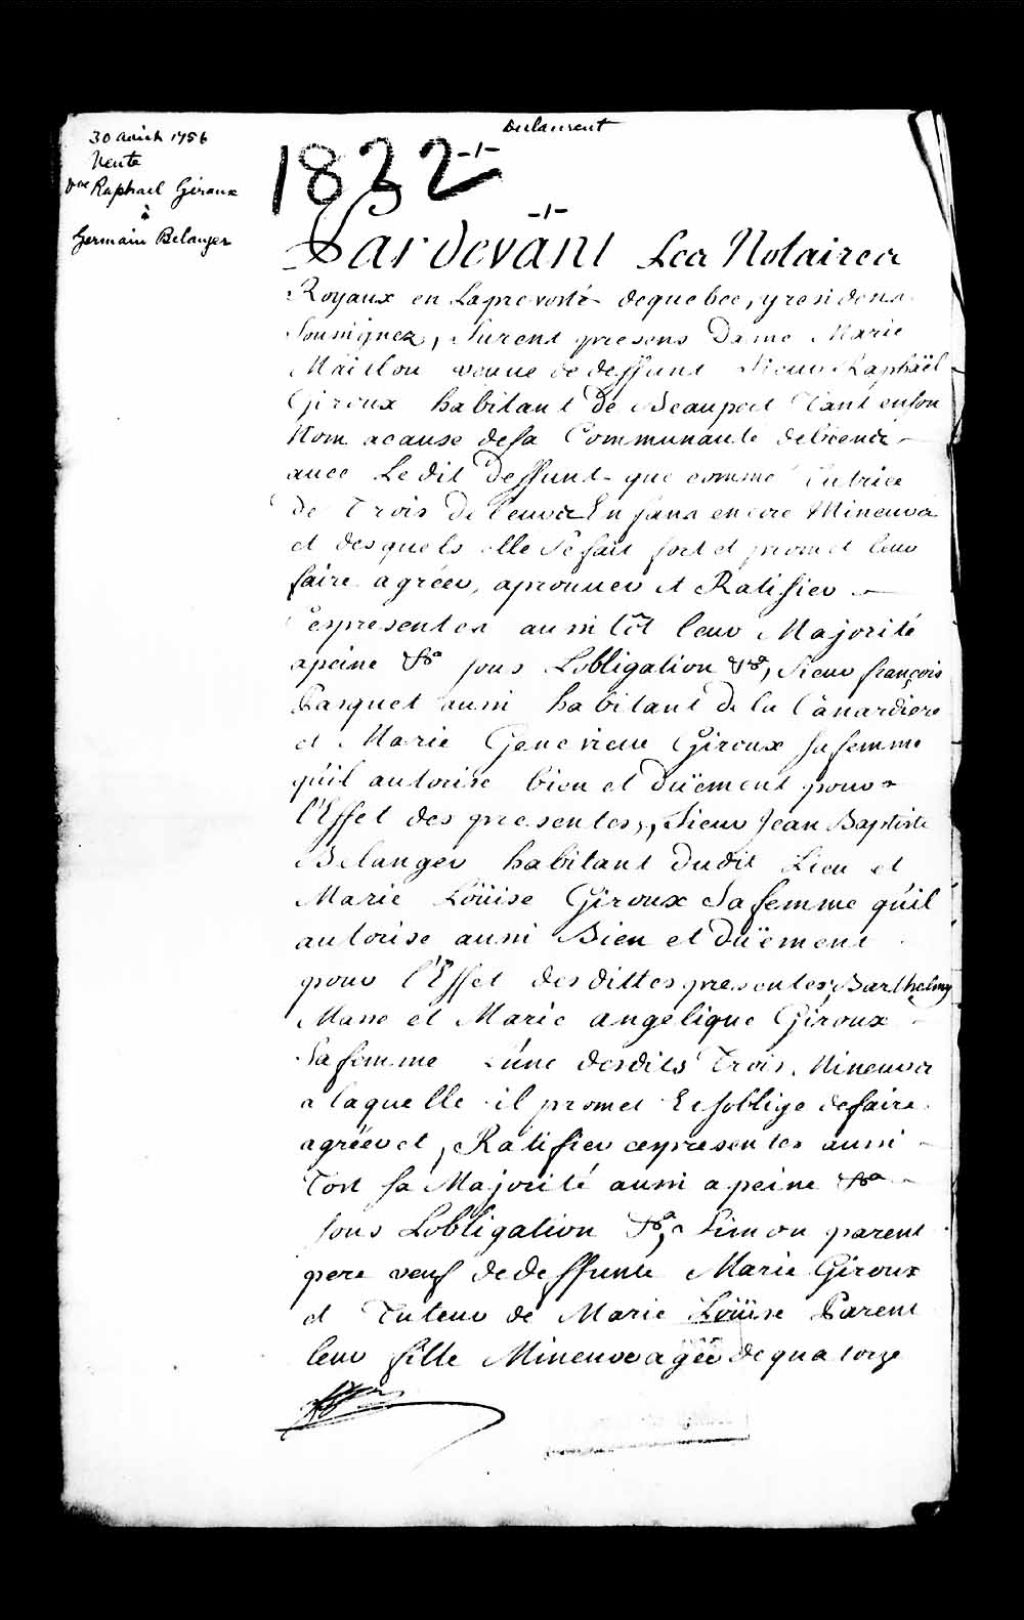 30 août 1756
Vente
Vve Raphael Giroux
à
Germain Belanger
Dulaurent
1832 -1-
-1-
Pardevant Les Notaires
Royaux en La prevosté dequebec, y residens
Soussignez, furent presens Dame Marie
Maillou veuve de deffunt Sieur Raphaël
Giroux habitant de Beauport Tant enson
Nom acause desa Communauté debiens
avec Ledit Deffunt que comme Tutrice
de Trois de leurs Enfans encore Mineurs
et desquels elle se fait fort et promet leur
faire agréer, aprouver et Ratifier
cespresentes aussitôt leur Majorité
apeine &a sous Lobligation &a, Sieur françois
Pasquet aussi habitant de la Canardiere
et Marie Genevieve Giroux sa femme
qu'il autorise bien et düement pour
l'Effet des presentes, Sieur Jean Baptiste
Belanger habitant dudit Lieu et
Marie Loüise Giroux Sa femme qu'il
autorise aussi Bien et Düement
pour l'Effet desdittes presentes, Barthelmy
Masse et Marie angelique Giroux
Safemme L'une desdits Trois Mineurs
a laquelle il promet Et soblige defaire
agréer et, Ratifier cespresentes aussi
Tost sa Majorité aussi a peine &a
sous Lobligation &a, Simon parent
pere veuf dedeffunte Marie Giroux
et Tuteur de Marie Loüise Parent
leur fille Mineure agée de quatorze